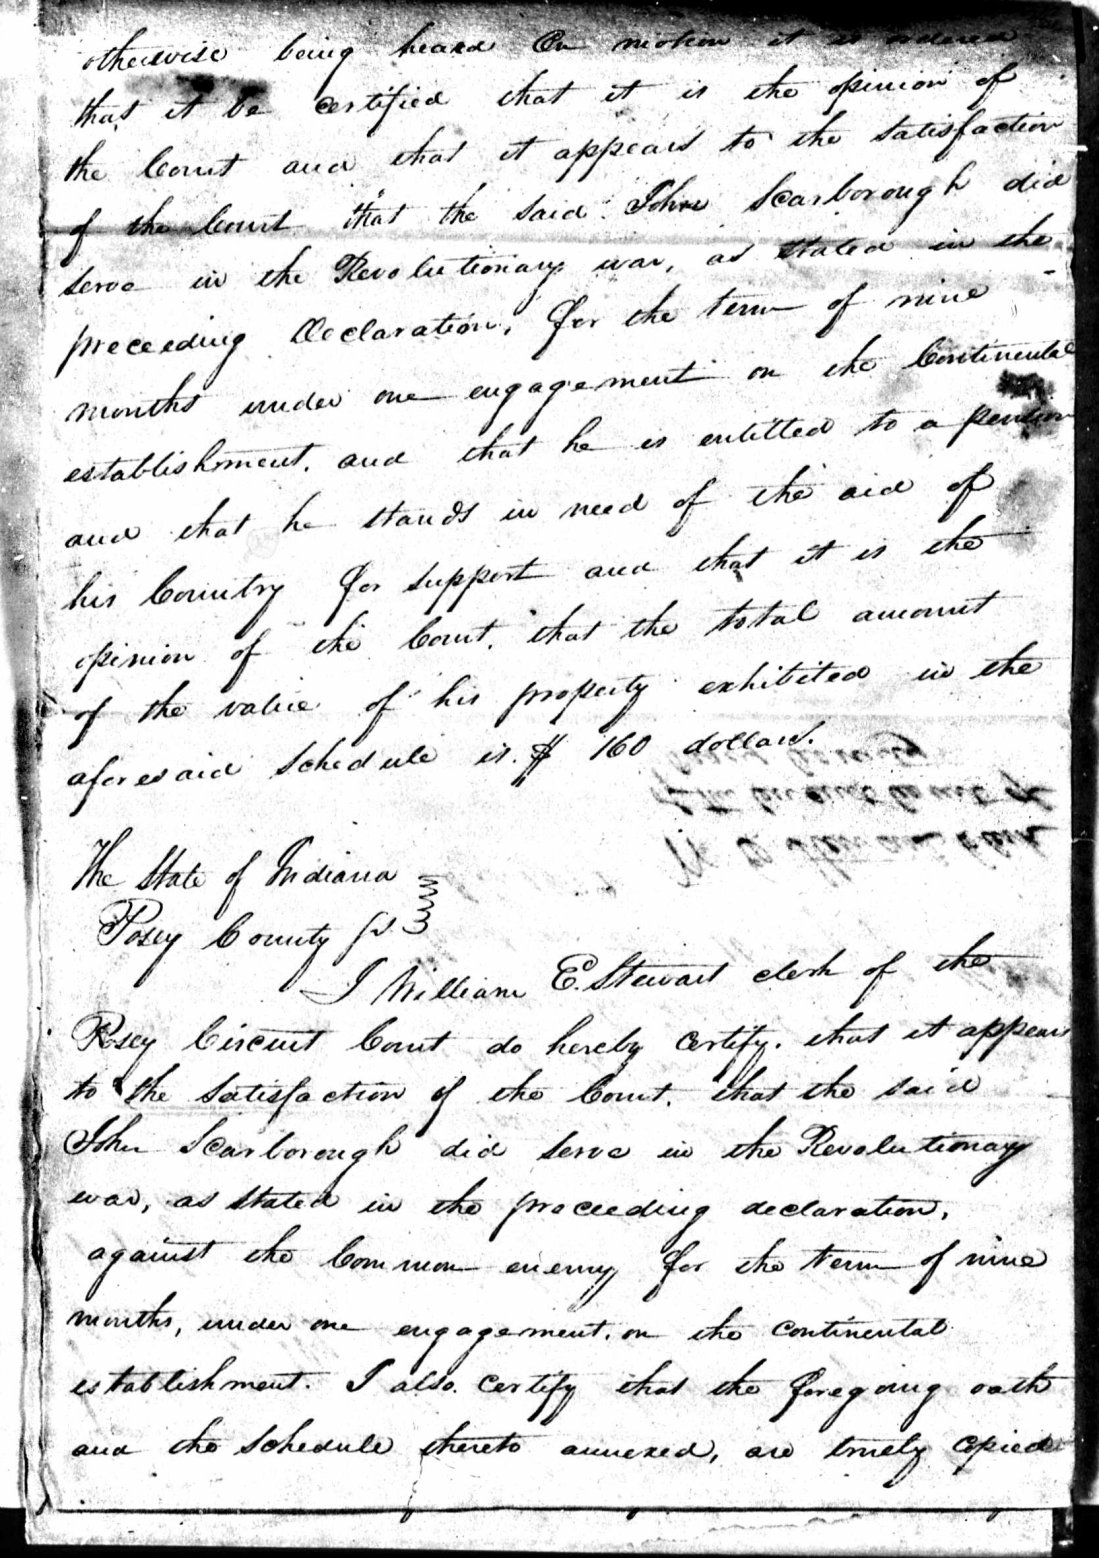 otherwise being heard On motion it is ordered
that it be certified that it is the opinion of
the Court and that it appears to the satisfaction
of the Court that the said John Scarborough did
serve in the Revolutionary war, as stated in the
preceeding Declaration, for the term of nine
months under one engagement on the Continental
establishment, and that he is entitled to a pension
and that he stands in need of the aid of
his Country for support and that it is the
opinion of the Court, that the total amount
of the value of his property exhibited in the
aforesaid schedule is $ 160 dollars.
The State of Indiana
Posey County
I William E. Stewart clerk of the
Posey Circuit Court do hereby certify, that it appears
to the satisfaction of the Court, that the said
John Scarborough did serve in the Revolutionary
war, as stated in the preceeding declaration,
against the Common enemy for the term of nine
months, under one engagement, on the continental
establishment. I also certify that the foregoing oath
and the schedule thereto annexed, are truely copied